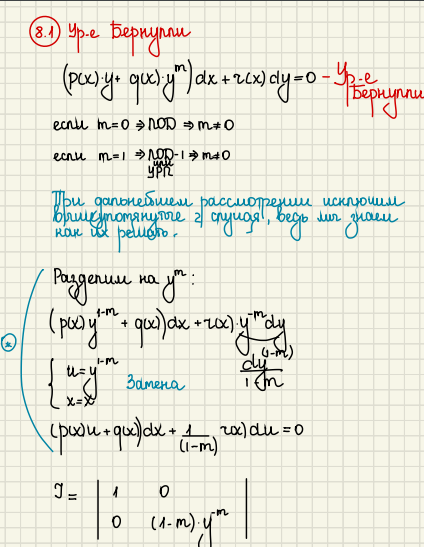 8.1 Ур-е Бернулли
(p(x)·y + q(x)·y^m) dx + r(x) dy = 0 - Ур-е Бернулли
если m=0 ⇒ ЛОД ⇒ m≠0
если m=1 ⇒ ЛОД-1 ⇒ m≠0
или
УРП
При дальнейшем рассмотрении исключим
2 случая, ведь мы знаем
как их решать.
Разделим на y^m:
(p(x) y^{1-m} + q(x)) dx + r(x)·y^{-m} dy
{ u = y^{1-m}
x = x
Замена
dy^{(1-m)} / (1-m)
(p(x)u + q(x)) dx + 1/(1-m) r(x) du = 0
*
J = | 1 0 |
| 0 (1-m)·y^{-m} |